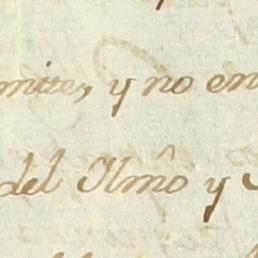 mittes, y no en
del Ilmõ y